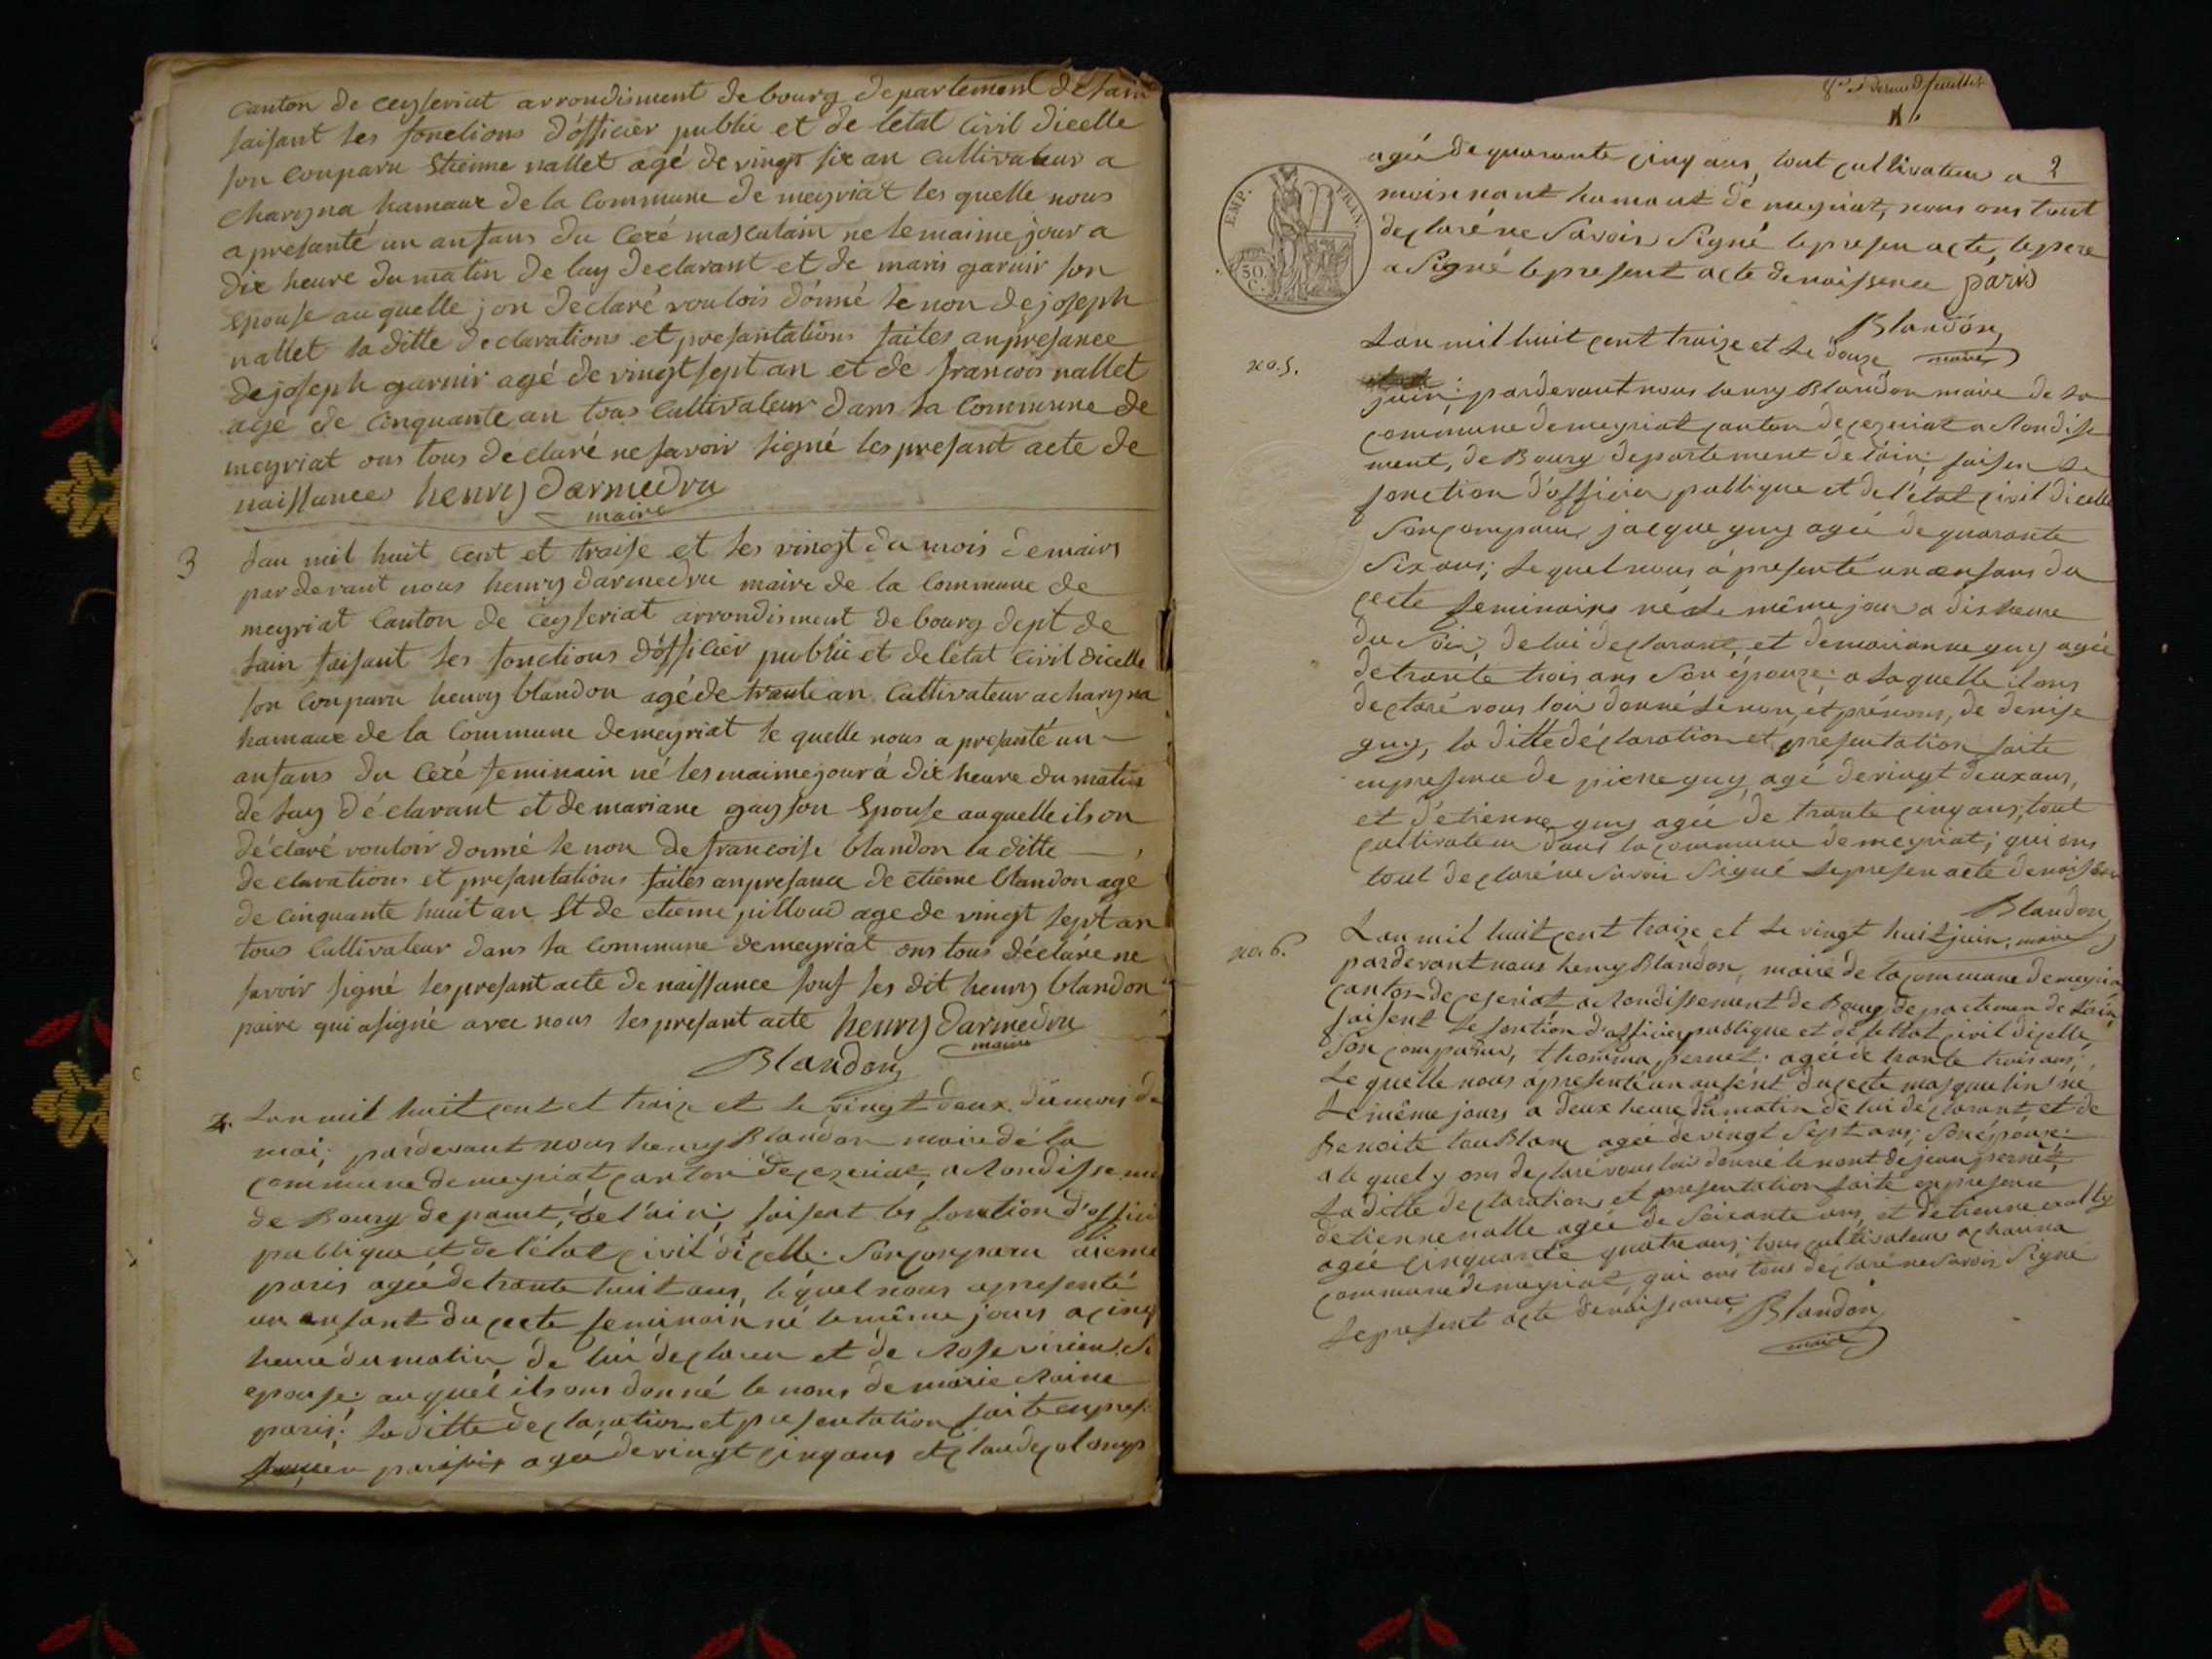 canton de ceyseriat arrondisment de bourg departement de lain
faisant les fonctions d'officier public et de letat civil dicelle
son conparu Etienne nallet agé de vingt six an cultivateur a
charyna hamaux de la commune de meyriat les quelle nous
a presanté un anfans du cexé masculain ne le maime jour a
dix heure du matin de luy declarant et de marie garnir son
epouse au quelle jon déclaré voulois donné le non de joseph
nallet la ditte declarations et presantations faites anpresance
de joseph garnir agé de vingt sept an et de francois nallet
agé de cinquante an tous cultivateur dans la commune de
meyriat ons tous déclaré ne savoir signé les presant acte de
naissances henry darmedru
maire
3
lan mil huit cent et traise et les vingt du mois de mairs
par devant nous henry darmedru maire de la commune de
meyriat canton de ceyseriat arrondisment de bourg dept de
lain faisant les fonctions d'officier public et de letat civil dicelle
son conparu henry blandon agé de trante an cultivateur a charyna
hamaux de la commune de meyriat le quelle nous a presanté un
anfans du cexé feminain né les maime jour à dix heure du matin
de luy déclarant et de mariane guy son epouse au quelle ils on
déclaré vouloir donné le non de francoise blandon la ditte
declarations et presantations faites anpresance de etiene blandon age
de cinquante huit an et de etiene pilloud age de vingt sept an
tous cultivateur dans la commune de meyriat ons tous déclaré ne
savoir signé les presant acte de naissance souf les dit henry blandon
paire qui a signé avec nous les presant acte henry darmedru
maire
Blandon
4. Lan mil huit cent et traize et le vingt deux du mois de
mai; pardevant nous henry Blandon maire dé la
commune de meyriat, canton de cezeriat, a Rondisse
de Bourg depamt, de l'ain; faisent les fonction d'offici
publique et de l'état civil dicelle. Son conparu
paris agée de trante huit ans, léquel nous a presenté
un enfant du cecte feminain né le même jours a cinq
heure du matin, de lui declaren et de Rose
epouse: au quel ils ons donné le nons de marie Raine
paris; la ditte declaration et presentation faite en pres
agée de vingt cinq ans et claude
8e et dernier feuillet
2
agée de quarante cinq ans, tout cultivateur a
hamaut de meyriat, nous ons tout
declaré ne Savoir Signé le presen acte, le pere
a Signé le present acte de naissence paris
EMP. FRAN.
30. C.
Blandon,
maire
no. 5.
Lan mil huit cent traize et le douze
juin; pardevant nous henry Blandon maire de la
commune de meyriat canton de cezeriat a Rondise
ment, de Bourg département de l'ain; faisen le
fonction d'officier publique et de l'état civil dicelle
Son comparu jacque guy agée de quarante
Six ans; le quel nous à presenté un enfans du
cecte feminains né le même jour a dix heure
du Soir; de lui declarant, et de marianne guy agée
de trante trois ans Son épouze: a laquelle il ons
declaré vous loir donné le non, et prénons, de denise
guy, la ditte déclaration et presentation faite
en presence de pierre guy, agé de vingt deux ans,
et d'étienne guy agée de trante cinq ans; tout
cultivateur dans la commune de meyriat; qui ons
tout declaré ne Savoir Signé le presen acte de naissen
Blandon,
maire
no. 6.
Lan mil huit cent traize et le vingt huit juin;
pardevant nous henry Blandon, maire de la commune de meyria
canton de ceseriat, a Rondissement de Bourg departemen de L'ain,
faisent le fontion d'officier publique et de lettat civil dicelle,
Son comparu, thomma pernet: agée de trante trois ans;
Le quelle nous à presenté un ansent du cecte masqulin né
Le même jours a deux heure du matin de lui déclarant, et de
Benoite agée de vingt Sept ans; Son épouze:
a le quel y ons declaré vous loir donné le nont de jean pernet,
La ditte declaration, et presentation faite en presence
détienne nalle agée de Soixante ans, et détienne
agée cinquante quatre ans; tous cultivateur a charina
commune de meyriat, qui ons tous déclaré ne Savoir Signé
Le present acte de naissance; Blandon
maire